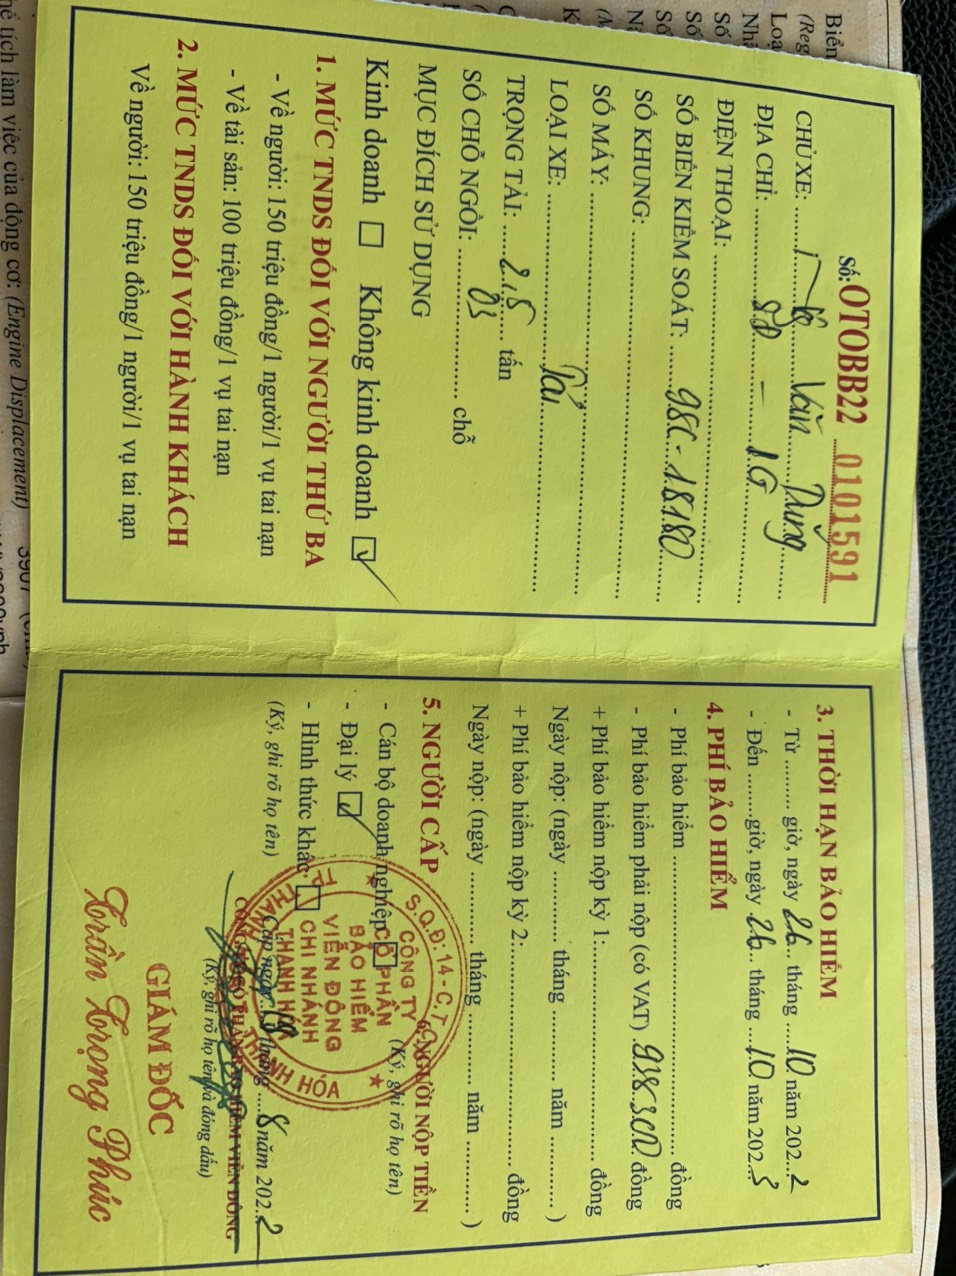 Số: OTOBB22 0101591
CHỦ XE: Văn Dũng
ĐỊA CHỈ: SĐ - TG
ĐIỆN THOẠI:
SỐ BIỂN KIỂM SOÁT: 98C-18180
SỐ KHUNG:
SỐ MÁY:
LOẠI XE: Tải
TRỌNG TẢI: 2,5 tấn
SỐ CHỖ NGỒI: 03 chỗ
MỤC ĐÍCH SỬ DỤNG
Kinh doanh Không kinh doanh
1. MỨC TNDS ĐỐI VỚI NGƯỜI THỨ BA
- Về người: 150 triệu đồng/1 người/1 vụ tai nạn
- Về tài sản: 100 triệu đồng/1 vụ tai nạn
2. MỨC TNDS ĐỐI VỚI HÀNH KHÁCH
Về người: 150 triệu đồng/1 người/1 vụ tai nạn
3. THỜI HẠN BẢO HIỂM
- Từ ......... giờ, ngày 26 tháng 10 năm 2022
- Đến ........giờ, ngày 26 tháng 10 năm 2023
4. PHÍ BẢO HIỂM
- Phí bảo hiểm ........ đồng
- Phí bảo hiểm phải nộp (có VAT) 938.300 đồng
+ Phí bảo hiểm nộp kỳ 1: ........ đồng
Ngày nộp: (ngày ........ tháng ........ năm ........ )
+ Phí bảo hiểm nộp kỳ 2: ........ đồng
Ngày nộp: (ngày ........ tháng ........ năm ........ )
5. NGƯỜI CẤP 6. NGƯỜI NỘP TIỀN
- Cán bộ doanh nghiệp (Ký, ghi rõ họ tên)
- Đại lý
- Hình thức khác
(Ký, ghi rõ họ tên) Cấp ngày 18 tháng 8 năm 2022
CÔNG TY CỔ PHẦN BẢO HIỂM VIỄN ĐÔNG
(Ký, ghi rõ họ tên và đóng dấu)
S.Q.Đ: 14 - C.T
CÔNG TY
CỔ PHẦN
BẢO HIỂM
VIỄN ĐÔNG
CHI NHÁNH
THANH HÓA
GIÁM ĐỐC
Trần Trọng Phúc
thể tích làm việc của động cơ: (Engine Displacement) 3907
Biển
(Reg
Loạ
Nhã
Số
Số
Số